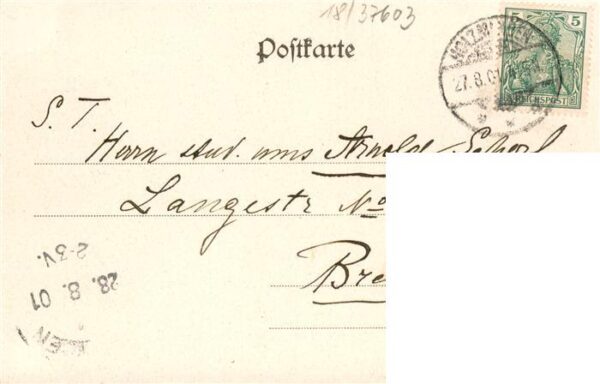 18/37603
Postkarte
5
REICHSPOST
27.8.01
S. T.
Herrn stud. mus Arnold
Langestr No
Bre
28. 8. 01
2-3V.